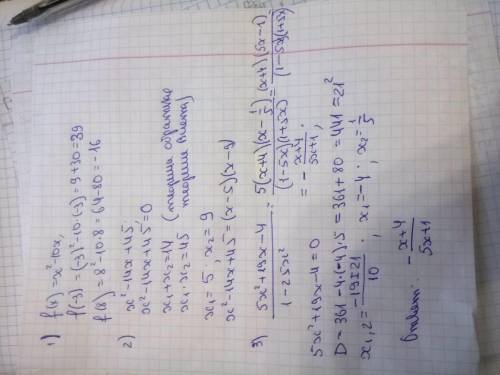 1) f(x) = x²-10x,
f(-3) = (-3)²-10·(-3) = 9+30 = 39
f(8) = 8²-10·8 = 64-80 = -16
2) x²-14x+45.
x²-14x+45=0
x₁+x₂=14 (теорема обратная
x₁·x₂=45 теореме Виета)
x₁=5, x₂=9
x²-14x+45 = (x-5)(x-9)
3) (5x²+19x-4)/(1-25x²) = 5(x+4)(x-1/5)/((1-5x)(1+5x)) = (x+4)(5x-1)/((1-5x)(1+5x)) =
= -(x+4)/(5x+1);
5x²+19x-4=0
D = 361-4·(-4)·5 = 361+80 = 441 = 21²
x₁,₂ = (-19±21)/10; x₁=-4; x₂=1/5
Ответ: -(x+4)/(5x+1)